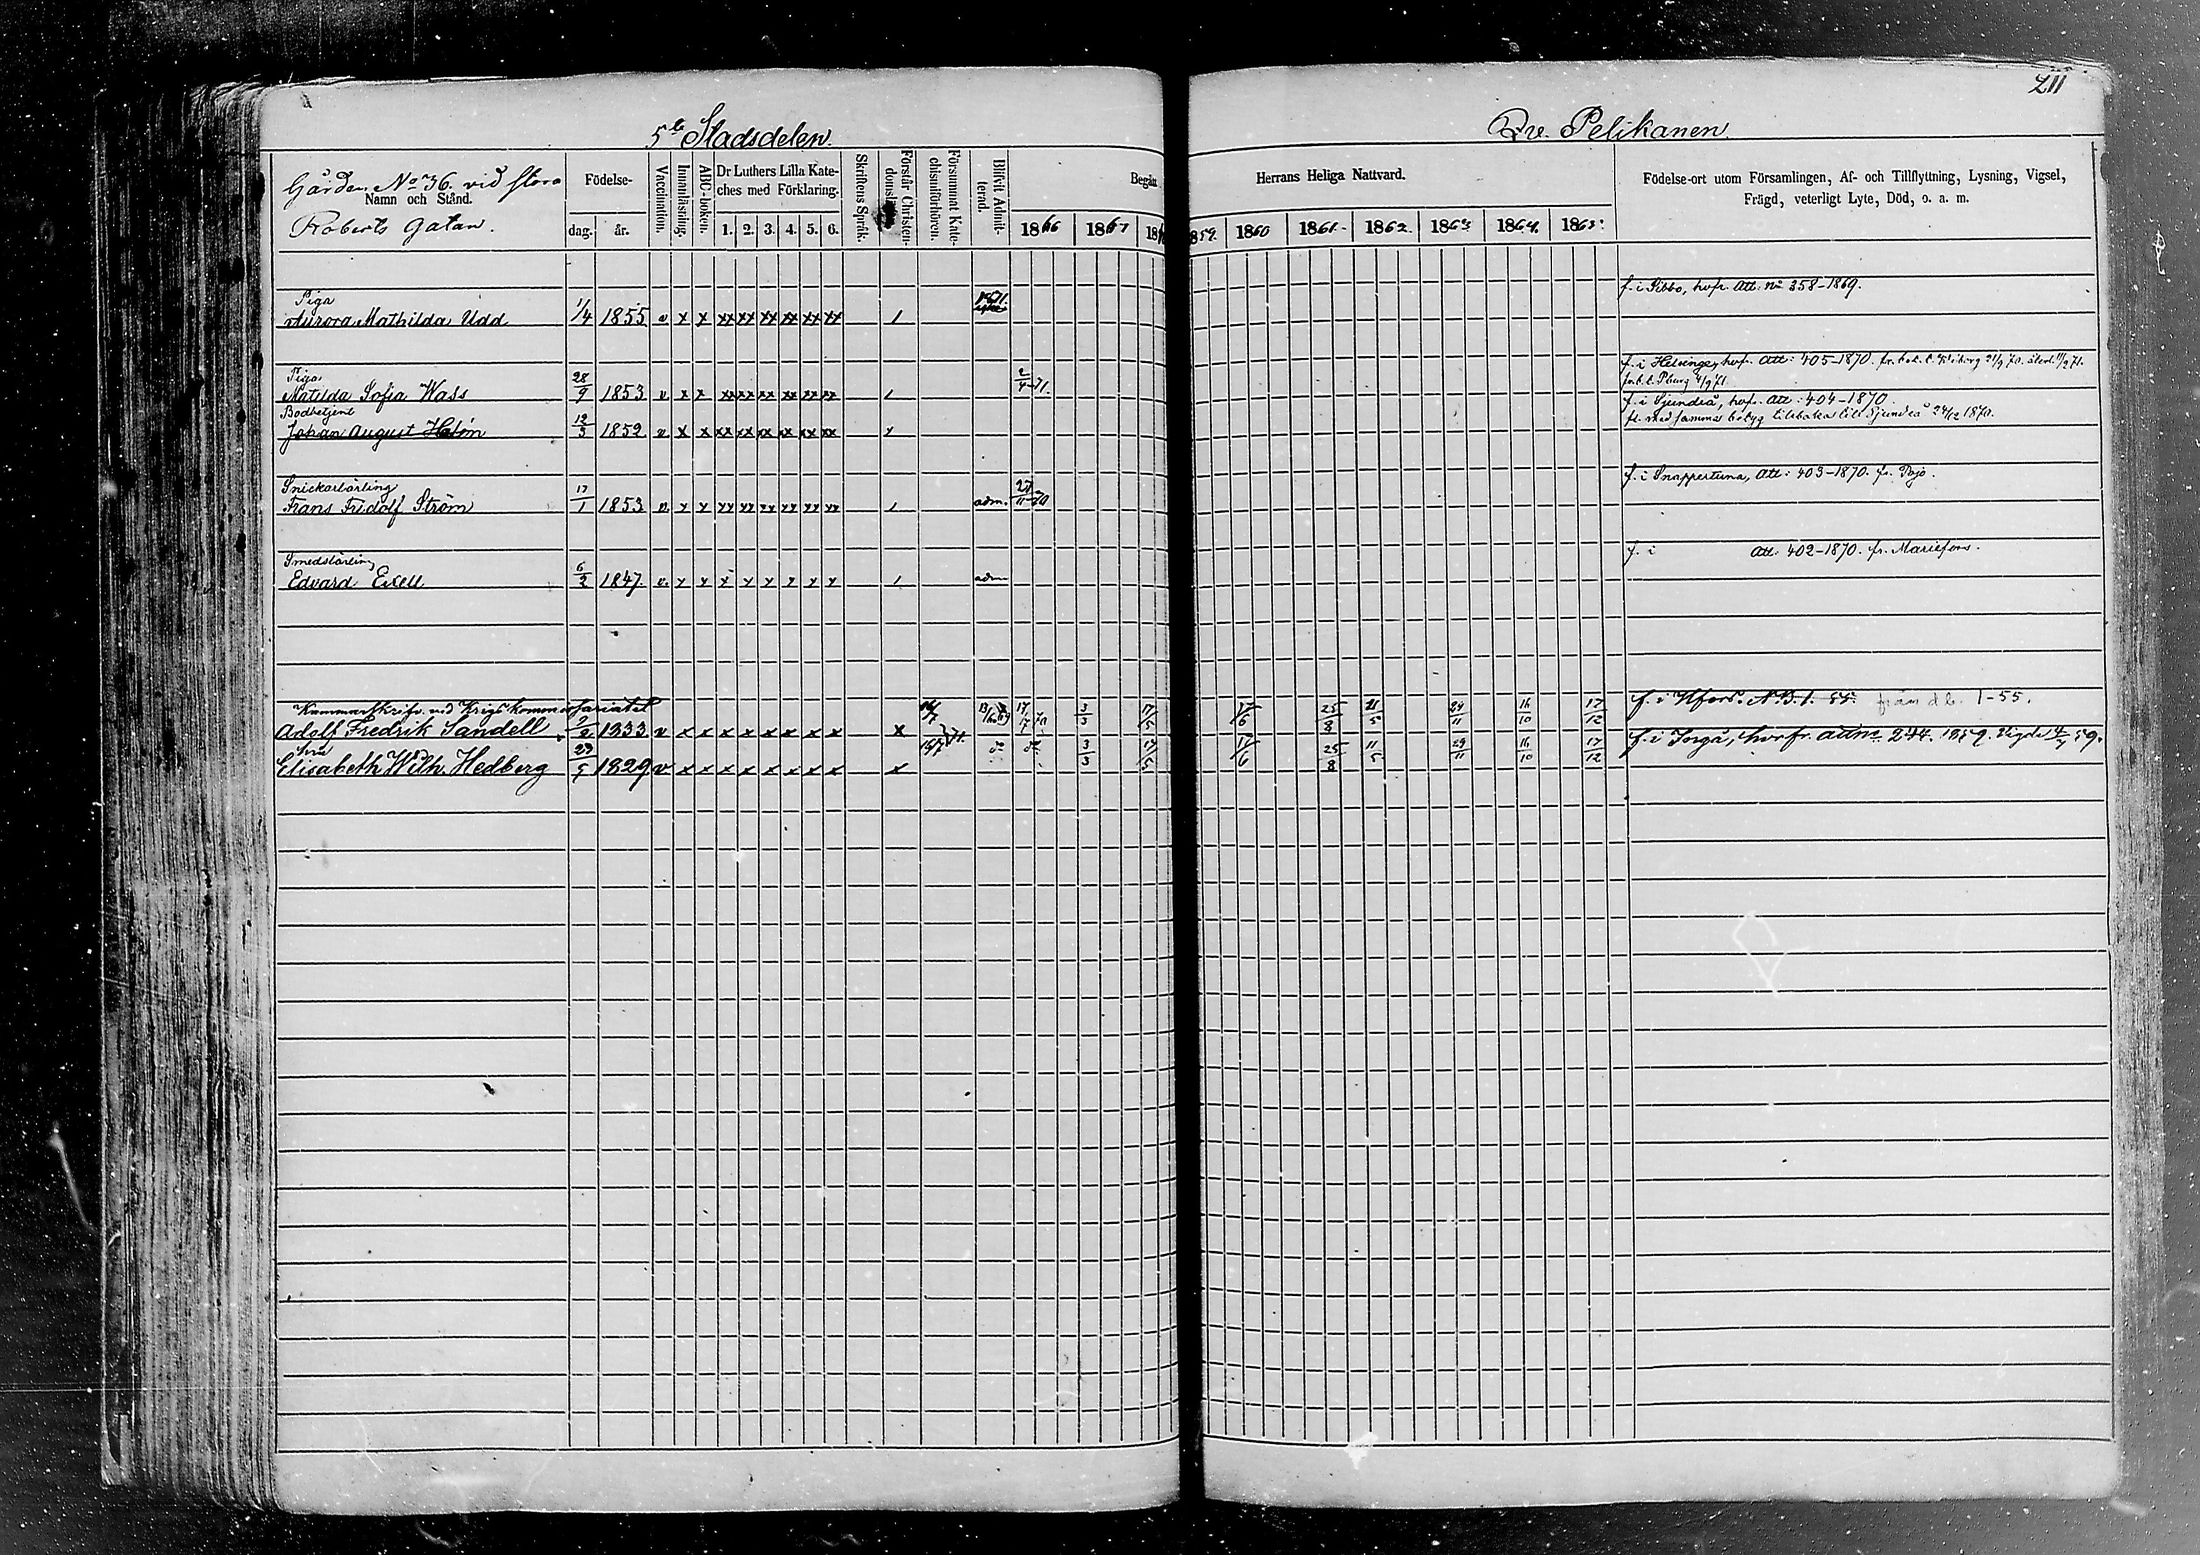 211
5te Stadsdelen.
Qv. Pelikanen.
Gården No 36. vid stora
Namn och Stånd.
Roberts gatan.
Födelse-
dag. år.
Vaccination.
Innanläsning.
ABC-boken.
Dr Luthers Lilla Kate-
ches med Förklaring.
1. 2. 3. 4. 5. 6.
Skriftens Språk.
Förstår Christen-
Försummat Kate-
chismiförhören.
Blifvit Admit-
terad.
Begått
1866 1867
Herrans Heliga Nattvard.
1859. 1860 1861. 1862. 1863 1864. 1865.
Födelse-ort utom Församlingen, Af- och Tillflyttning, Lysning, Vigsel,
Frägd, veterligt Lyte, Död, o. a. m.
Piga 1871. f. i Sibbo, hvfr. Att: no 358-1869.
Aurora Mathilda Udd 1/4 1855 v x x xx xx xx xx xx xx /
Piga 2/4 71. f. i Helsinge, hvfr. Att: 405-1870.
Matilda Sofia Wass 28/9 1853 v x x xx xx xx xx xx xx /
Bodbetjent f. i Sjundeå, hvfr. Att: 404-1870.
Johan August Holm 12/3 1852 v x x xx xx xx xx xx xx fl. med samma betyg tillbaka till Sjundeå 24/12 1870.
Snickarlärling f. i Snappertuna, Att: 403-1870. fr. Pojo.
Frans Fridolf Ström 17/1 1853 v. x x xx xx xx xx xx xx / adm. 27/11 70
Smedslärling f. i Att. 402-1870. fr. Mariefors.
Edvard Exell 6/2 1847. v. x x x x x x x x / adm
Kammarskrifv. ved Krigskommissariatet f. i Hfors. N.B. 1. 55. från d b. 1-55.
Adolf Fredrik Sandell 2/2 1833 v x x x x x x x x x 17/7 70 3/3 17/5 17/6 25/8 21/5 29/11 16/10 17/12
hu f. i Borgå, hvrfr. att no 244. 1859. Vigde 59.
Elisabeth Wilh. Hedberg 29/5 1829 v x x x x x x x x x do do 3/3 17/5 17/6 25/8 11/5 29/11 16/10 17/12